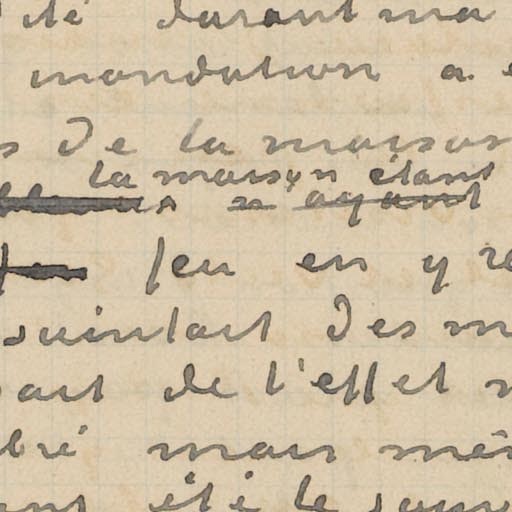 été durant ma
inondation a
s de la maison
la maison étant
n ayant
feu en y re
suintait des m
ait de l'effet
bré mais mêm
ens été le souv